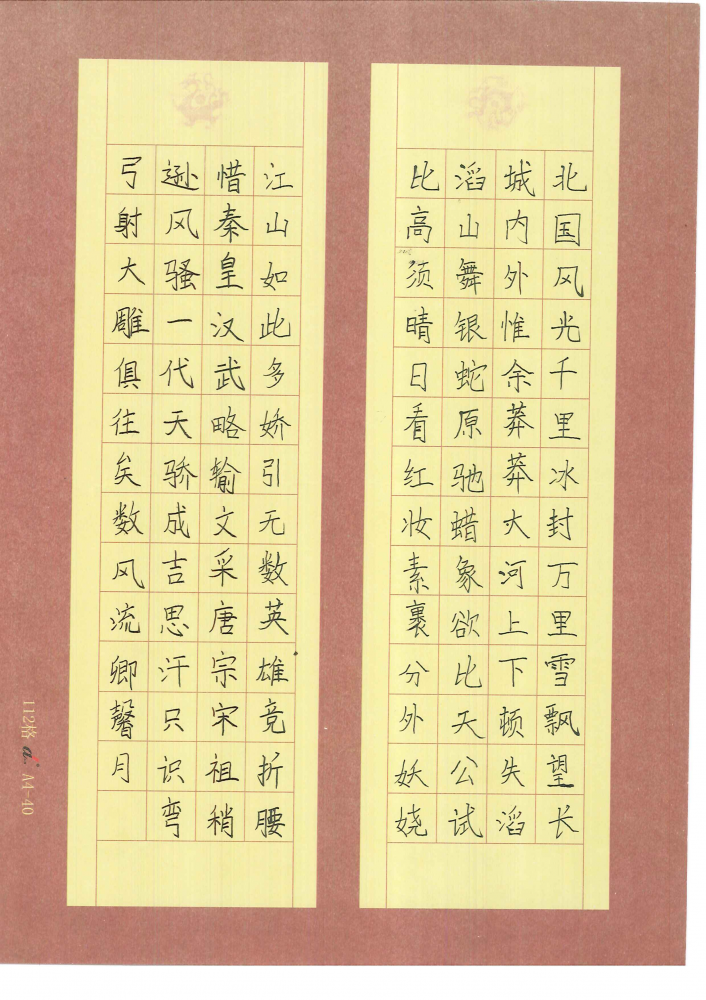 北国风光千里冰封万里雪飘望长
城内外惟余莽莽大河上下顿失滔
滔山舞银蛇原驰蜡象欲比天公试
比高须晴日看红妆素裹分外妖娆
江山如此多娇引无数英雄竞折腰
惜秦皇汉武略输文采唐宗宋祖稍
逊风骚一代天骄成吉思汗只识弯
弓射大雕俱往矣数风流卿馨月
112格 a A4-40